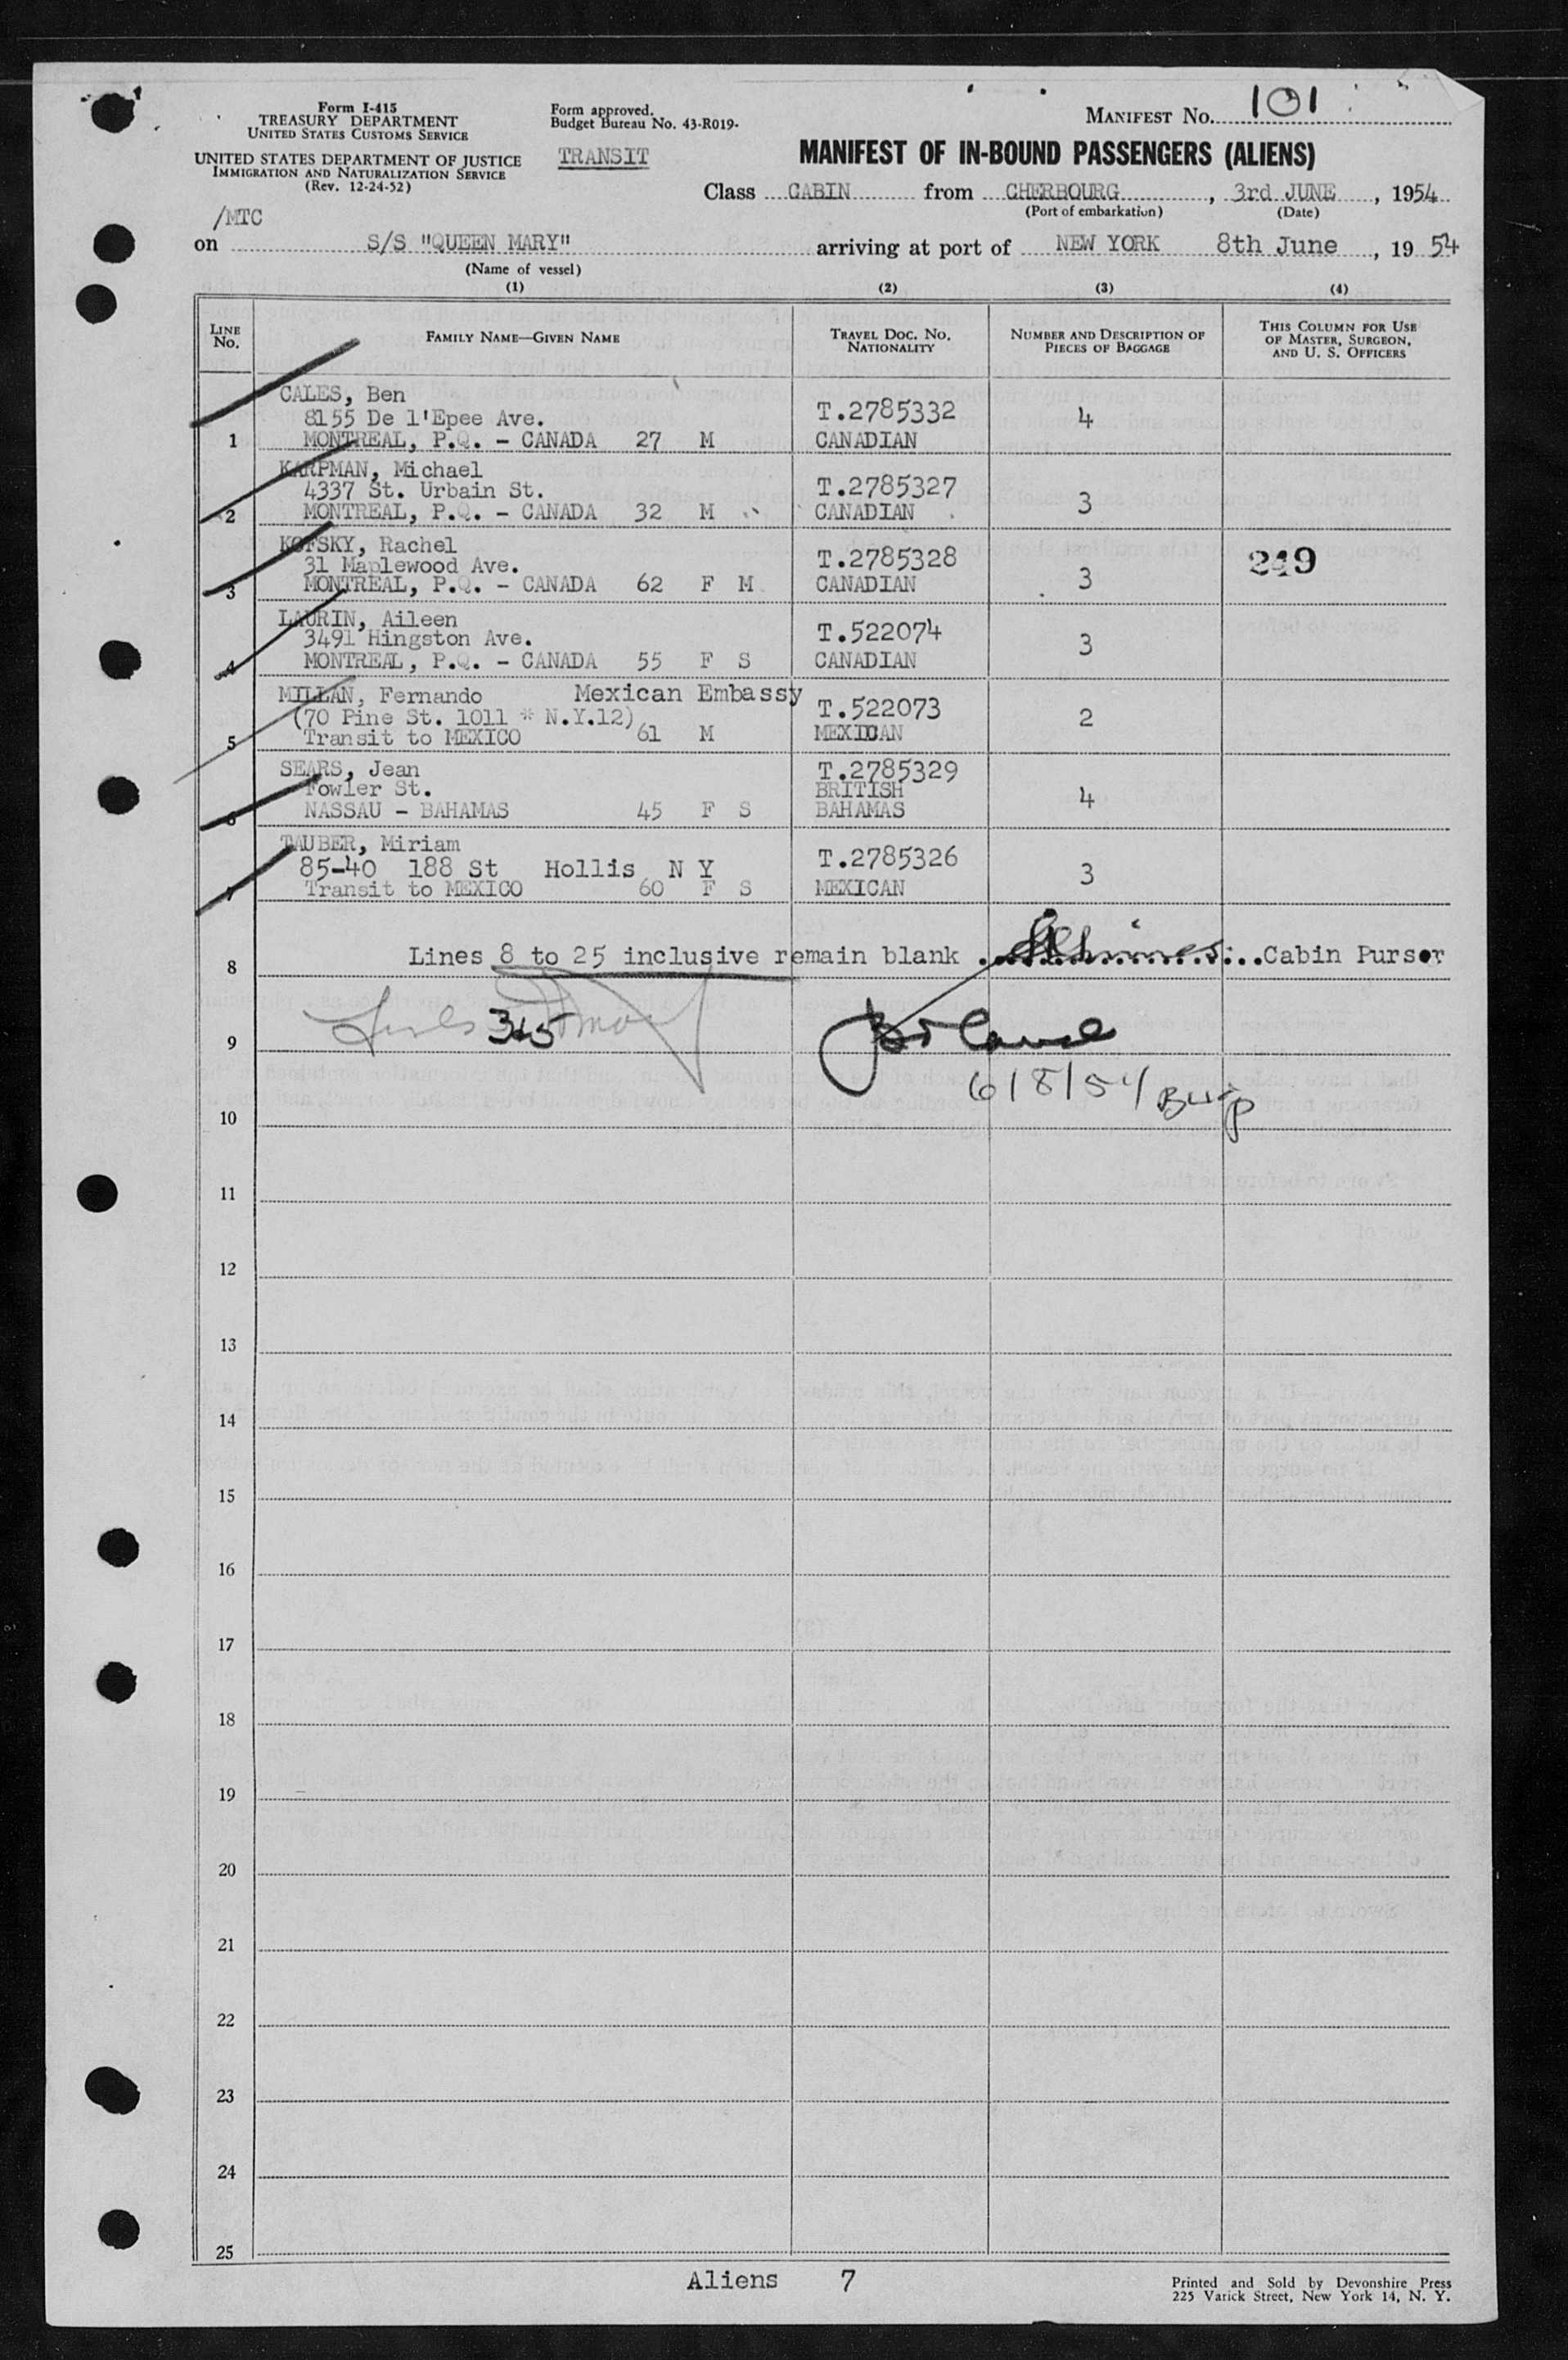 Form I-415
TREASURY DEPARTMENT
UNITED STATES CUSTOMS SERVICE
UNITED STATES DEPARTMENT OF JUSTICE
IMMIGRATION AND NATURALIZATION SERVICE
(Rev. 12-24-52)
Form approved.
Budget Bureau No. 43-R019-
TRANSIT
MANIFEST NO. 101
MANIFEST OF IN-BOUND PASSENGERS (ALIENS)
Class CABIN from CHERBOURG, 3rd JUNE, 1954
(Port of embarkation) (Date)
/MTC
on S/S "QUEEN MARY" arriving at port of NEW YORK 8th June, 1954
(Name of vessel)
(1) (2) (3) (4)
LINE No. FAMILY NAME—GIVEN NAME TRAVEL DOC. No. NATIONALITY NUMBER AND DESCRIPTION OF PIECES OF BAGGAGE THIS COLUMN FOR USE OF MASTER, SURGEON, AND U. S. OFFICERS
CALES, Ben
8155 De l'Epee Ave. T.2785332 4
1 MONTREAL, P.Q. - CANADA 27 M CANADIAN
KARPMAN, Michael
4337 St. Urbain St. T.2785327 3
2 MONTREAL, P.Q. - CANADA 32 M CANADIAN
KOFSKY, Rachel
31 Maplewood Ave. T.2785328 249
3 MONTREAL, P.Q. - CANADA 62 F M CANADIAN 3
LAURIN, Aileen
3491 Hingston Ave. T.522074 3
4 MONTREAL, P.Q. - CANADA 55 F S CANADIAN
MILLAN, Fernando Mexican Embassy
(70 Pine St. 1011 * N.Y.12) T.522073 2
5 Transit to MEXICO 61 M MEXICAN
SEARS, Jean T.2785329
Fowler St. BRITISH 4
6 NASSAU - BAHAMAS 45 F S BAHAMAS
TAUBER, Miriam
85-40 188 St Hollis N Y T.2785326 3
7 Transit to MEXICO 60 F S MEXICAN
8 Lines 8 to 25 inclusive remain blank Cabin Purser
9 345
6/8/54
10
11
12
13
14
15
16
17
18
19
20
21
22
23
24
25
Aliens 7
Printed and Sold by Devonshire Press
225 Varick Street, New York 14, N. Y.